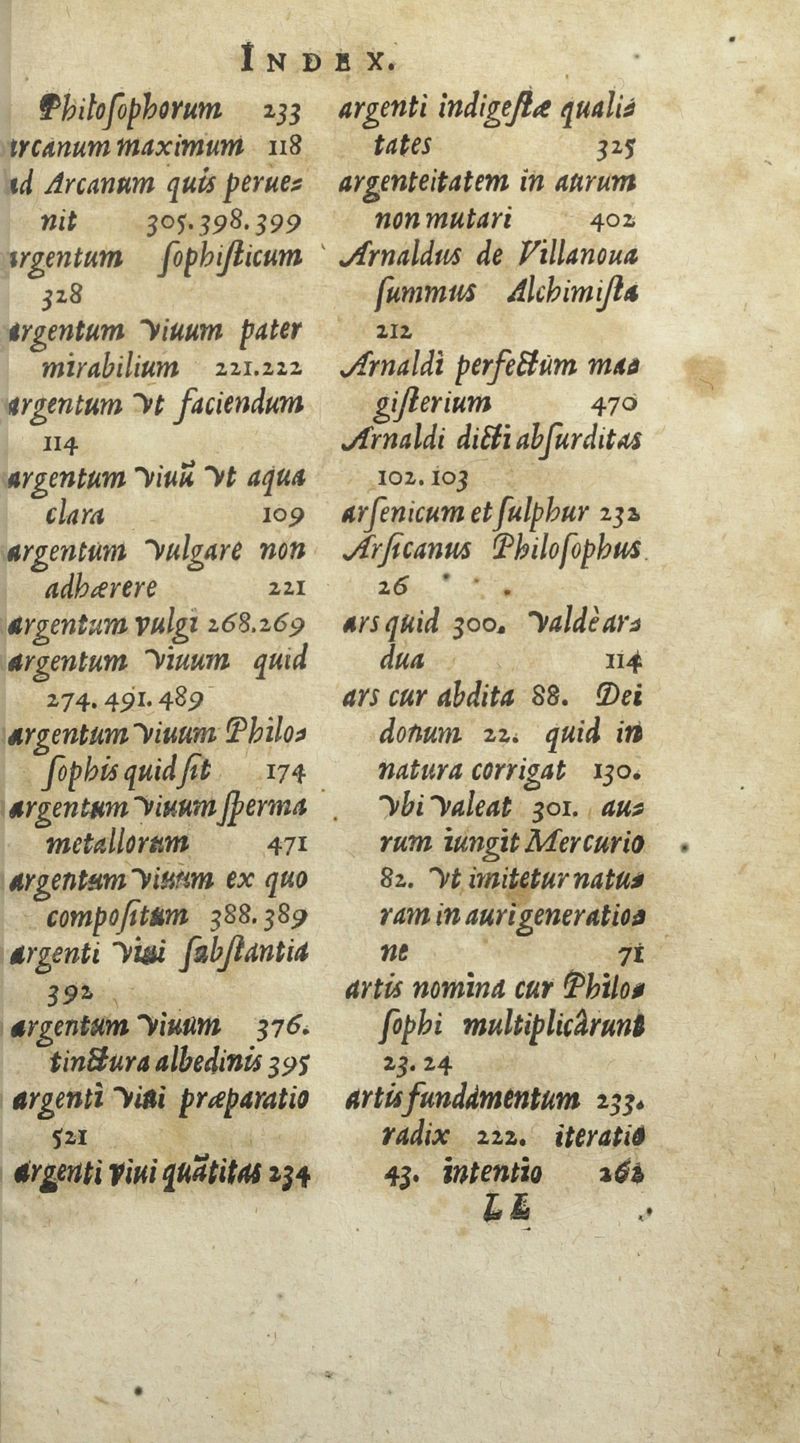 INDEX.
Philoſophorum 233
arcanum maximum 118
ad Arcanum quis perue⸗
nit 305.398.399
argentum ſophiſticum
328
argentum viuum pater
mirabilium 221.222
argentum vt faciendum
114
argentum viuū vt aqua
clara 109
argentum vulgare non
adhærere 221
argentum vulgi 268.269
argentum viuum quid
274.491.489
argentum viuum Philo⸗
ſophis quid ſit 174
argentum viuum ſperma
metallorum 471
argentum viuum ex quo
compoſitum 388.389
argenti viui ſubſtantia
392
argentum viuum 376.
tinctura albedinis 395
argenti viui præparatio
521
argenti viui quātitas 234
argenti indigeſtæ quali⸗
tates 325
argenteitatem in aurum
non mutari 402
Arnaldus de Villanoua
ſummus Alchimiſta
212
Arnaldi perfectum ma⸗
giſterium 470
Arnaldi dicti abſurditas
102.103
arſenicum et ſulphur 232
Arſicanus Philoſophus
26
ars quid 300. valdè ar⸗
dua 114
ars cur abdita 88. Dei
donum 22. quid in
natura corrigat 130.
vbi valeat 301. au⸗
rum iungit Mercurio
82. vt imitetur natu⸗
ram in auri generatio⸗
ne 71
artis nomina cur Philo⸗
ſophi multiplicârunt
23.24
artis fundamentum 233.
radix 222. iteratio
43. intentio 262
Ll